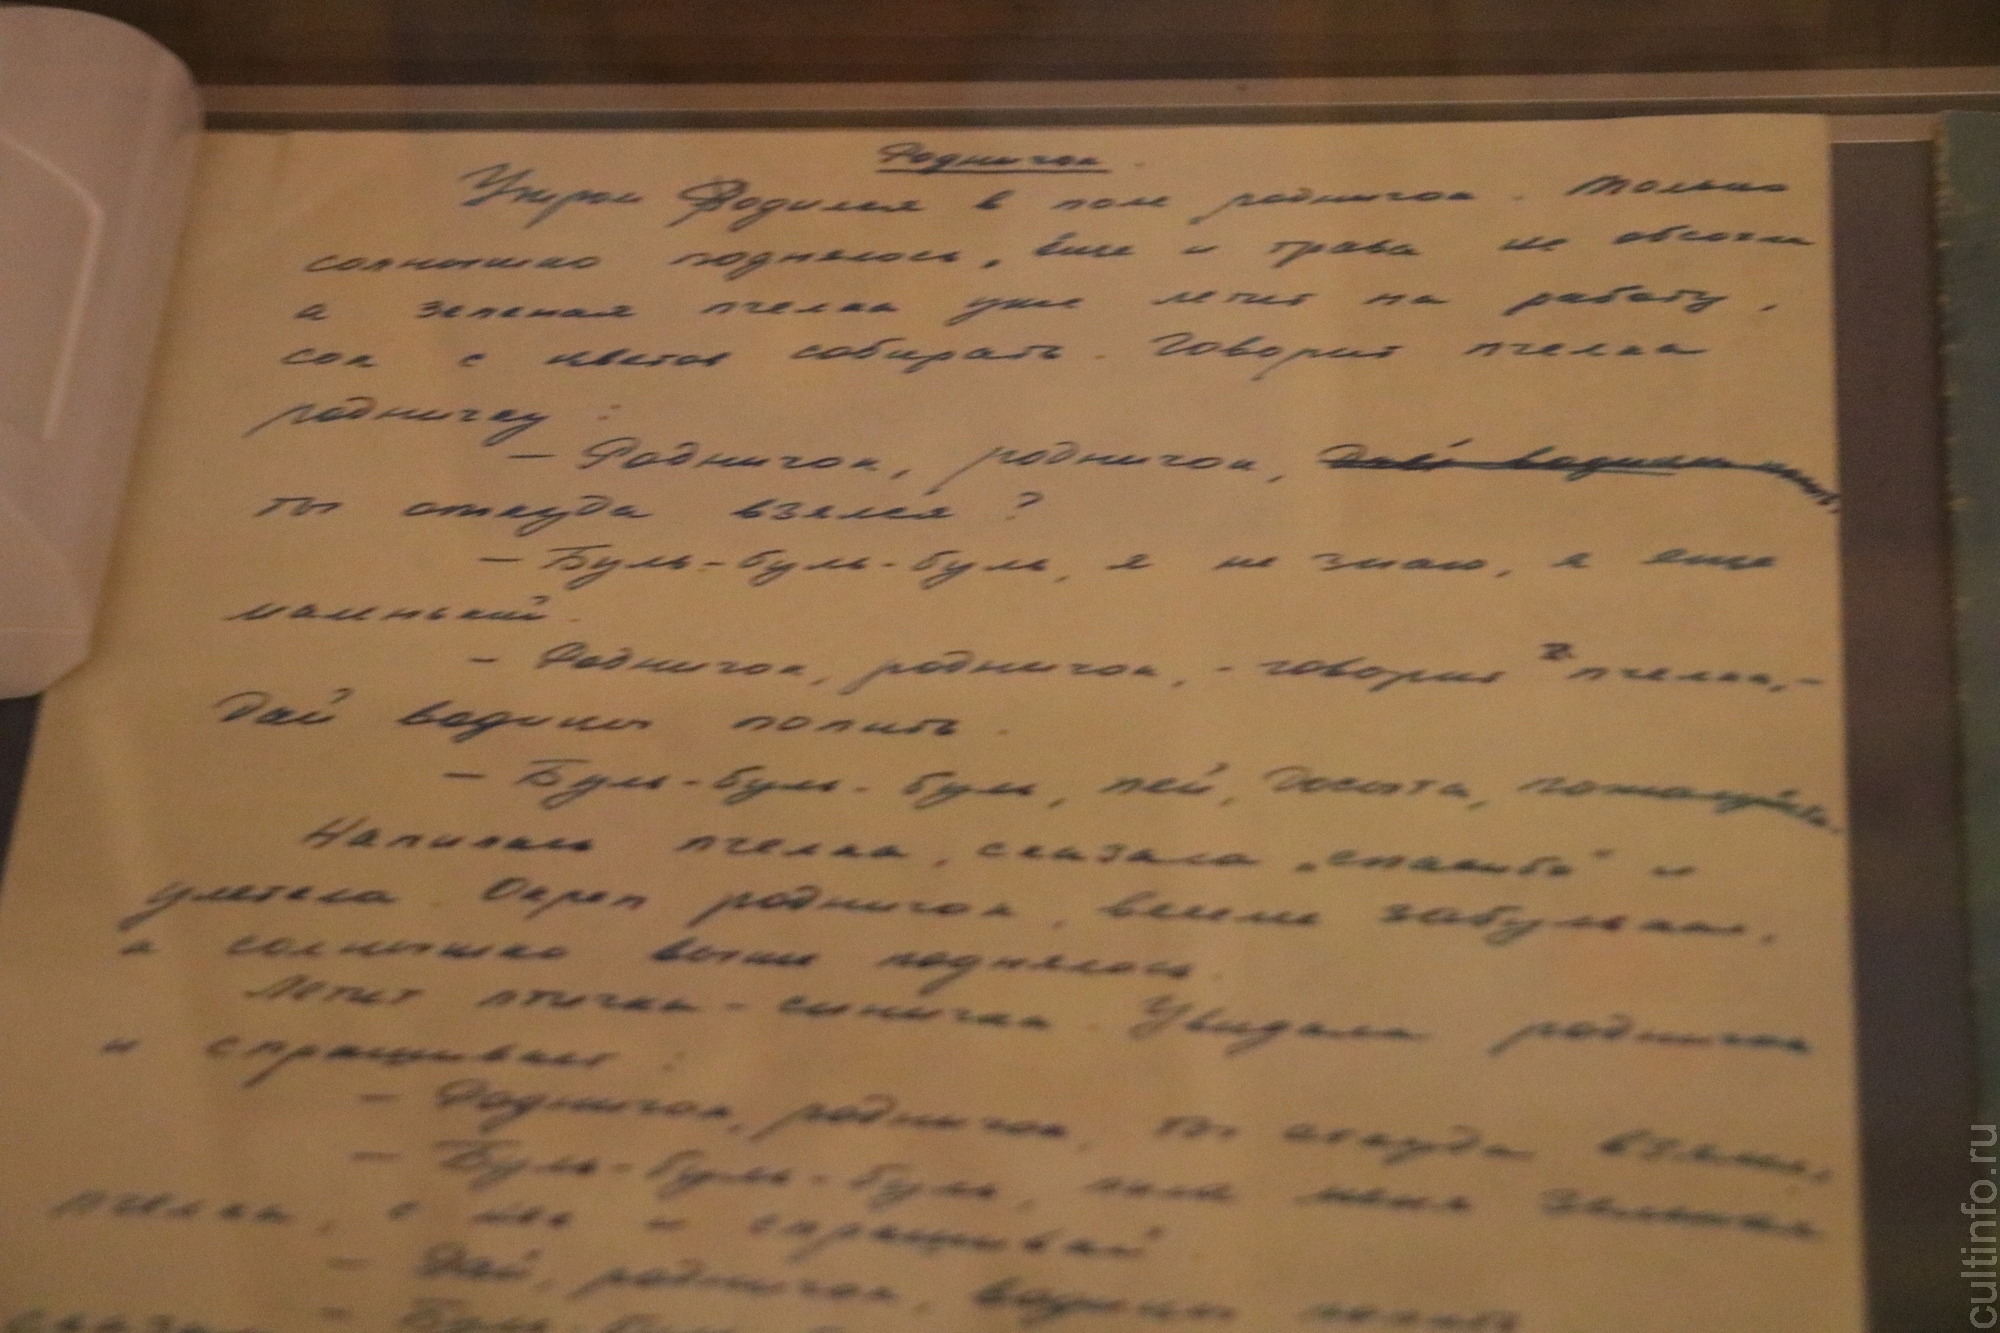 Родничок.
Утром Родился в поле родничок. Только
солнышко поднялось, еще и трава не обсохла
а зеленая пчелка уже летит на работу,
сок с цветов собирать. Говорит пчелка
родничку:
– Родничок, родничок, дай водицы попить,
ты откуда взялся?
– Буль-буль-буль, я не знаю, я еще
маленький.
– Родничок, родничок, - говорит пчелка, –
Дай водицы попить.
– Буль-буль-буль, пей, досыта, пожалуйста.
Напилась пчелка, сказала „спасибо" и
улетела. Окреп родничок, забулькал,
а солнышко выше поднялось.
Летит птичка-синичка. Увидала родничок
и спрашивает:
– Родничок, родничок, ты откуда взялся?
– Буль-буль-буль, меня зеленая
пчелка, у нее и спрашивай.
– Дай, родничок, водицы попить
– Буль-буль
cultinfo.ru